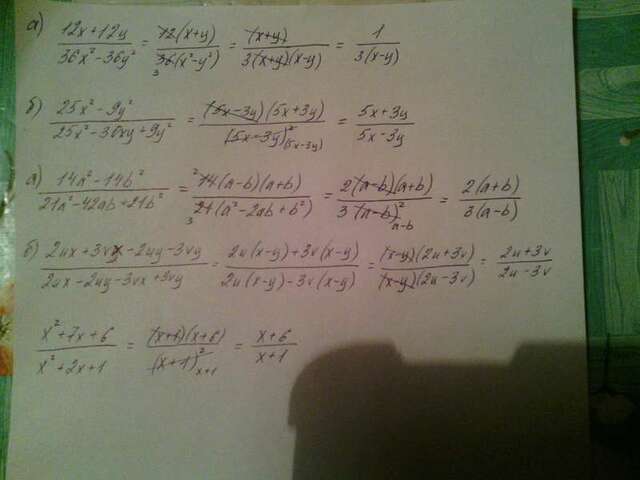 а) (12x+12y)/(36x²-36y²) = (12(x+y))/(36(x²-y²)) 3 = ((x+y))/(3(x+y)(x-y)) = 1/(3(x-y))
б) (25x²-9y²)/(25x²-30xy+9y²) = ((5x-3y)(5x+3y))/((5x-3y)²) (5x-3y) = (5x+3y)/(5x-3y)
а) (14a²-14b²)/(21a²-42ab+21b²) = 2 (14(a-b)(a+b))/(21(a²-2ab+b²)) 3 = (2(a-b)(a+b))/(3(a-b)²) a-b = (2(a+b))/(3(a-b))
б) (2ux+3vx-2uy-3vy)/(2ux-2uy-3vx+3vy) = (2u(x-y)+3v(x-y))/(2u(x-y)-3v(x-y)) = ((x-y)(2u+3v))/((x-y)(2u-3v)) = (2u+3v)/(2u-3v)
(x²+7x+6)/(x²+2x+1) = ((x+1)(x+6))/((x+1)²) x+1 = (x+6)/(x+1)